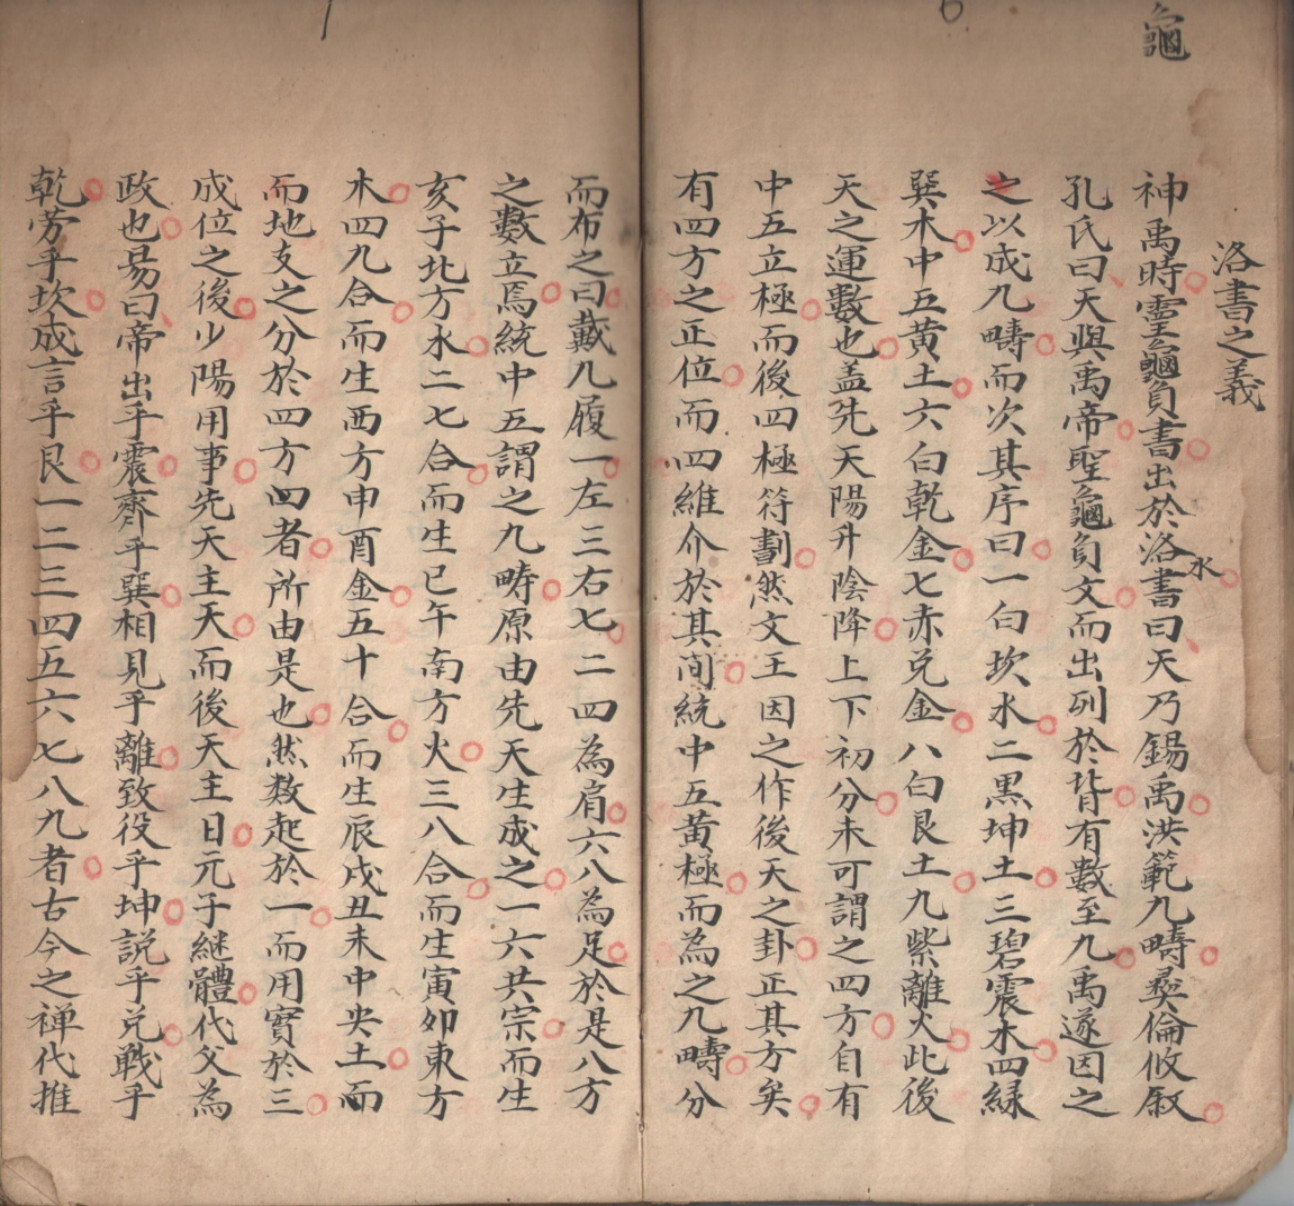 龜
洛書之義
神禹時靈龜負書出於洛水書曰天乃錫禹洪範九疇彛倫攸叙
孔氏曰天與禹帝聖龜負文而出列於背有數至九禹遂因之
之以成九疇而次其序曰一白坎水二黑坤土三碧震木四緑
巽木中五黄土六白乾金七赤兑金八白艮土九紫離火此後
天之運數也盖先天陽升陰降上下初分未可謂之四方自有
中五立極而後四極符劃然文王因之作後天之卦正其方矣
有四方之正位而四維介於其间統中五黄極而為之九疇分
而布之曰戴九履一左三右七二四為肩六八為足於是八方
之數立焉統中五謂之九畴原由先天生成之一六共宗而生
亥子北方水二七合而生巳午南方火三八合而生寅夘東方
木四九合而生西方申酉金五十合而生辰戌丑未中央土而
而地支之分於四方四者所由是也然数起於一而用寳於三
成位之後少陽用事先天主天而後天主日元子継體代父為
政也昜曰帝出乎震齊乎巽相見乎離致役乎坤説乎兑戰乎
乾劳乎坎成言乎艮一二三四五六七八九者古今之禅代推